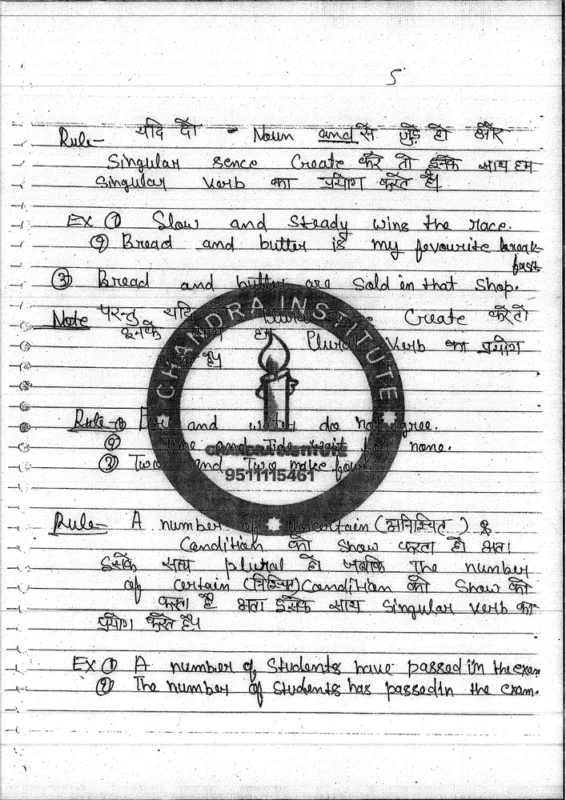 5
Rule- यदि दो - Noun and से जुड़े हो और
Singular sence Create करे तो इनके साथ हम
Singular verb का प्रयोग करते है।
EX ① Slow and Steady wins the race.
② Bread and butter is my favourite break-
fast
③ Bread and butter are Sold in that Shop.
Note परन्तु यदि Create करे तो
इनके हम Plural Verb का प्रयोग
है।
CHANDRA INSTITUTE
Rule-① and water do not agree.
② Time and Tide wait for none.
③ Two and Two make four.
CHANDRA INSTITUTE
9511115461
Rule- A number of Uncertain (अनिश्चित) &
Condition को Show करता हो अतः
इसके साथ plural हो जबकि The number
of certain (निश्चित) Condition को Show को
करता है अतः इसके साथ Singular verb का
प्रयोग करते है।
EX ① A number of Students have passed in the exam
② The number of Students has passed in the exam.